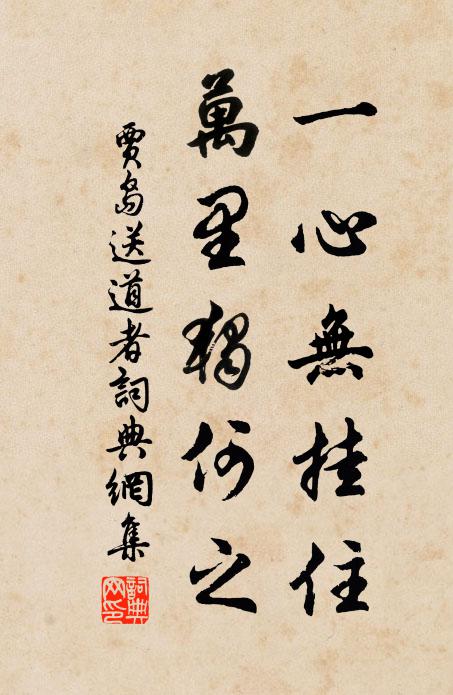 一心無挂住
萬里獨何之
賈島送道者詞典網集
詞典
网印